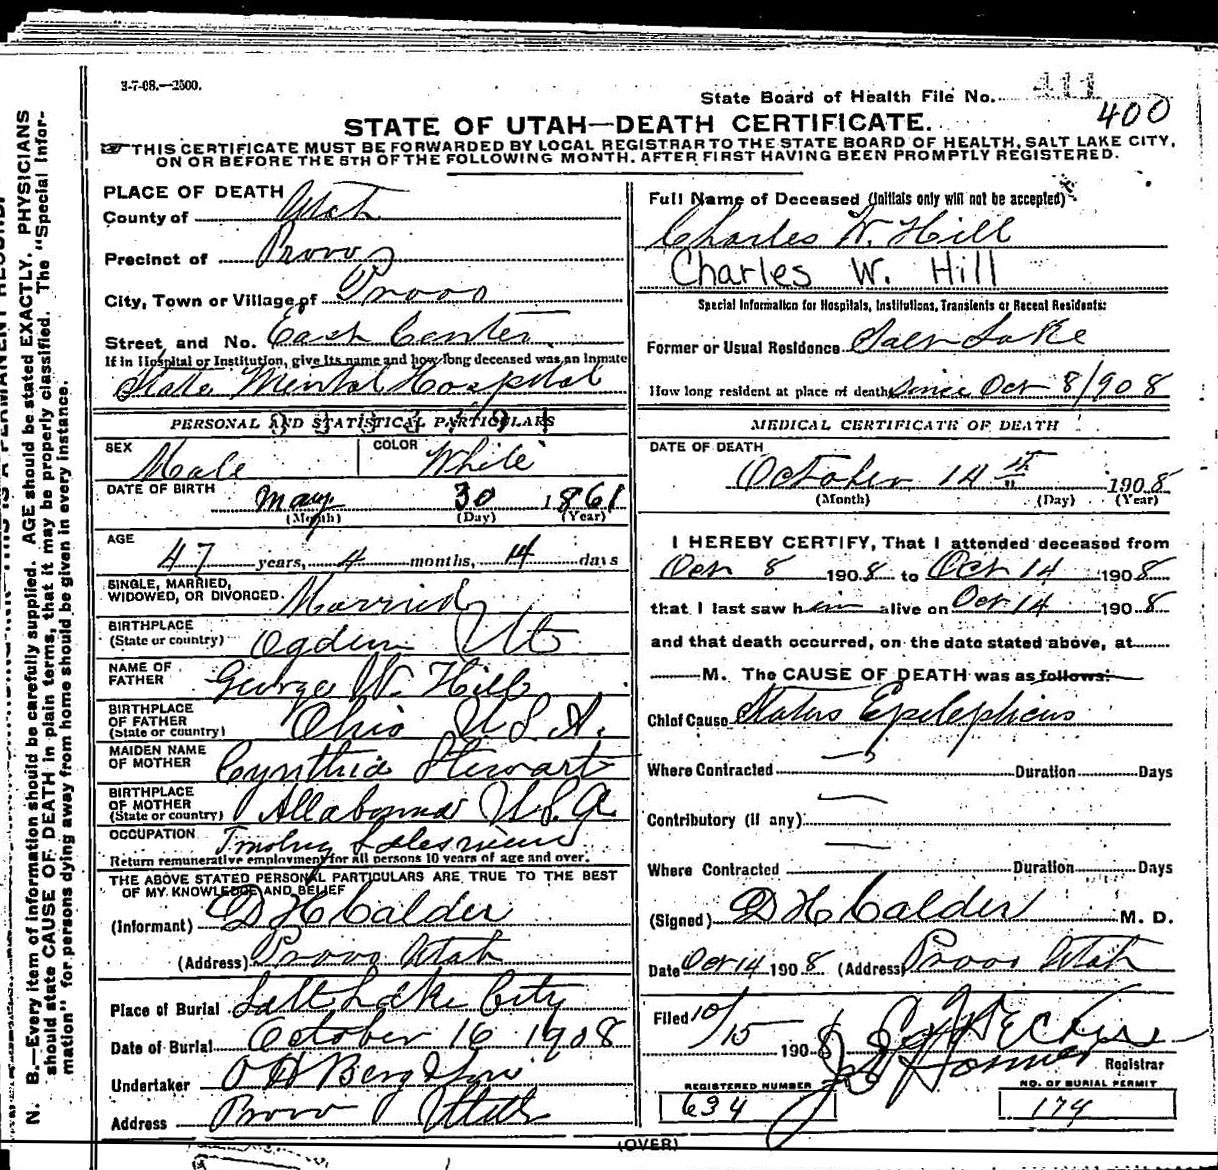 3-7-08.—2500.
State Board of Health File No. 411
400
STATE OF UTAH—DEATH CERTIFICATE.
THIS CERTIFICATE MUST BE FORWARDED BY LOCAL REGISTRAR TO THE STATE BOARD OF HEALTH, SALT LAKE CITY,
ON OR BEFORE THE 5TH OF THE FOLLOWING MONTH. AFTER FIRST HAVING BEEN PROMPTLY REGISTERED.
PLACE OF DEATH
County of Utah
Precinct of Provo
City, Town or Village of Provo
Street, and No. East Center
If in Hospital or Institution, give its name and how long deceased was an inmate
State Mental Hospital
PERSONAL AND STATISTICAL PARTICULARS
SEX Male
COLOR White
DATE OF BIRTH May 30 1861
(Month) (Day) (Year)
AGE
47 years, 4 months, 14 days
SINGLE, MARRIED,
WIDOWED, OR DIVORCED. Married
BIRTHPLACE
(State or country) Ogden Ut
NAME OF
FATHER George W. Hill
BIRTHPLACE
OF FATHER
(State or country) Ohio U.S.A.
MAIDEN NAME
OF MOTHER Cynthia Stewart
BIRTHPLACE
OF MOTHER
(State or country) Allabama U.S.A
OCCUPATION Salesman
Return remunerative employment for all persons 10 years of age and over.
THE ABOVE STATED PERSONAL PARTICULARS ARE TRUE TO THE BEST
OF MY KNOWLEDGE AND BELIEF
(Informant) D H Calder
(Address) Provo Utah
Place of Burial Salt Lake City
Date of Burial October 16 1908
Undertaker O H Berg & Son
Address Provo Utah
Full Name of Deceased (Initials only will not be accepted)
Charles W. Hill
Charles W. Hill
Special Information for Hospitals, Institutions, Transients or Recent Residents:
Former or Usual Residence Salt Lake
How long resident at place of death Since Oct 8/908
MEDICAL CERTIFICATE OF DEATH
DATE OF DEATH
October 14th 1908
(Month) (Day) (Year)
I HEREBY CERTIFY, That I attended deceased from
Oct 8 1908 to Oct 14 1908
that I last saw him alive on Oct 14 1908
and that death occurred, on the date stated above, at
M. The CAUSE OF DEATH was as follows:
Chief Cause Status Epilepticus
Where Contracted Duration Days
Contributory (if any)
Where Contracted Duration Days
(Signed) D H Calder M. D.
Date Oct 14 1908 (Address) Provo Utah
Filed 10/15 1908
Registrar
REGISTERED NUMBER
634
NO. OF BURIAL PERMIT
174
(OVER)
N. B.—Every item of information should be carefully supplied. AGE should be stated EXACTLY. PHYSICIANS
should state CAUSE OF DEATH in plain terms, that it may be properly classified. The "Special Infor-
mation" for persons dying away from home should be given in every instance.